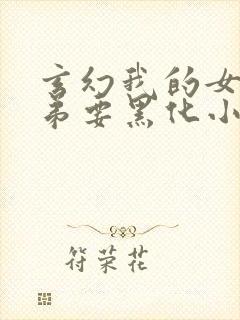 玄幻我的女
弟要黑化小
符荣花